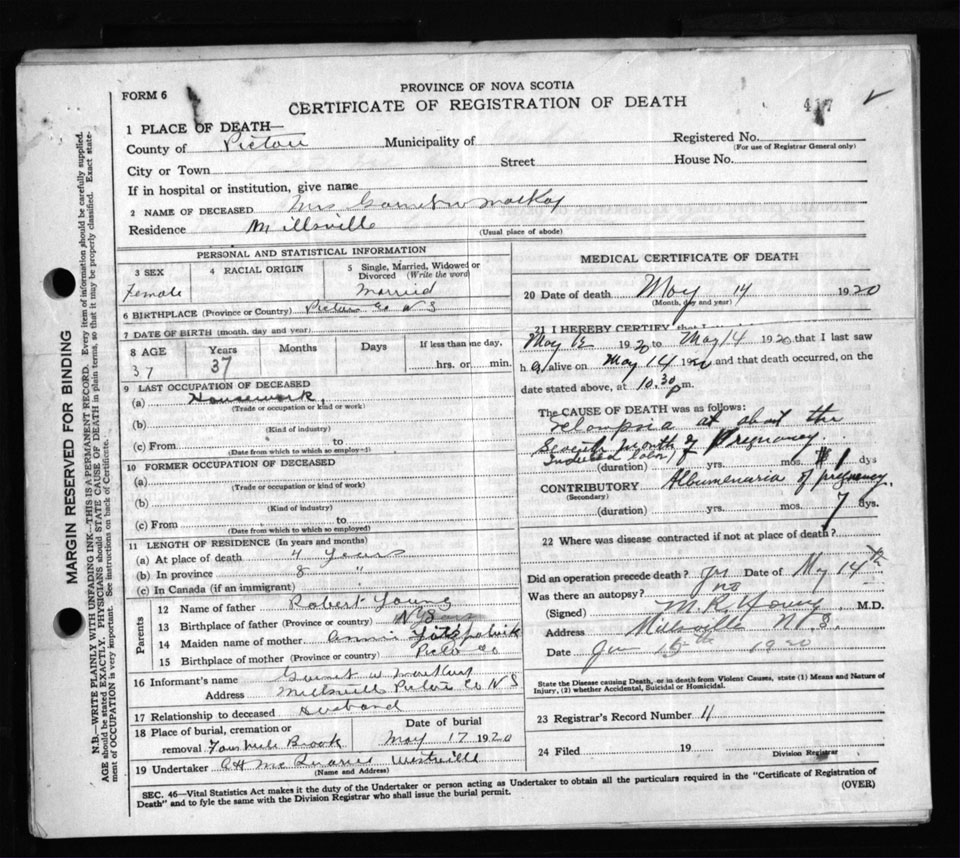 FORM 6
PROVINCE OF NOVA SCOTIA
CERTIFICATE OF REGISTRATION OF DEATH
417
1 PLACE OF DEATH—
County of Pictou Municipality of Registered No.
(For use of Registrar General only)
City or Town Street House No.
If in hospital or institution, give name
2 NAME OF DECEASED Mrs MacKay
Residence Millsville (Usual place of abode)
PERSONAL AND STATISTICAL INFORMATION
3 SEX 4 RACIAL ORIGIN 5 Single, Married, Widowed or Divorced (Write the word)
Female Married
6 BIRTHPLACE (Province or Country) Pictou Co N S
7 DATE OF BIRTH (month, day and year)
8 AGE Years Months Days If less than one day,
37 37 hrs. or min.
9 LAST OCCUPATION OF DECEASED
(a) Housework.
(Trade or occupation or kind or work)
(b)
(Kind of industry)
(c) From to
(Date from which to which so employed)
10 FORMER OCCUPATION OF DECEASED
(a)
(Trade or occupation or kind of work)
(b)
(Kind of industry)
(c) From to
(Date from which to which so employed)
11 LENGTH OF RESIDENCE (In years and months)
(a) At place of death 4 years
(b) In province 8 "
(c) In Canada (if an immigrant)
Parents
12 Name of father Robert Young
13 Birthplace of father (Province or country)
14 Maiden name of mother Annie Fitzpatrick
15 Birthplace of mother (Province or country) Pictou Co
16 Informant's name Garnet W MacKay
Address Millsville Pictou Co N S
17 Relationship to deceased Husband
18 Place of burial, cremation or Date of burial
removal Four Mile Brook May 17 1920
19 Undertaker Westville
(Name and Address)
MEDICAL CERTIFICATE OF DEATH
20 Date of death May 14 1920
(Month, day and year)
21 I HEREBY CERTIFY that I
May 1920 to May 14 1920 that I last saw
h alive on May 14 1920 and that death occurred, on the
date stated above, at 10.30 pm.
The CAUSE OF DEATH was as follows:
Eclampsia at about the
Seventh month of Pregnancy
Induced labor
(duration) yrs. mos. 1 dys
CONTRIBUTORY Albumenaria of pregnancy.
(Secondary)
(duration) yrs. mos. 7 dys.
22 Where was disease contracted if not at place of death?
Did an operation precede death? yes Date of May 14th
Was there an autopsy? no
(Signed) M.R. Young, M.D.
Address Millsville N.S.
Date 15th 1920
State the Disease causing Death, or in death from Violent Causes, state (1) Means and Nature of
Injury, (2) whether Accidental, Suicidal or Homicidal.
23 Registrar's Record Number 11
24 Filed 19
Division Registrar
SEC. 46—Vital Statistics Act makes it the duty of the Undertaker or person acting as Undertaker to obtain all the particulars required in the "Certificate of Registration of
Death" and to fyle the same with the Division Registrar who shall issue the burial permit. (OVER)
MARGIN RESERVED FOR BINDING
N.B.—WRITE PLAINLY WITH UNFADING INK—THIS IS A PERMANENT RECORD. Every item of information should be carefully supplied.
AGE should be stated EXACTLY. PHYSICIANS should STATE CAUSE OF DEATH in plain terms, so that it may be properly classified. Exact state-
ment of OCCUPATION is very important. See instructions on back of Certificate.